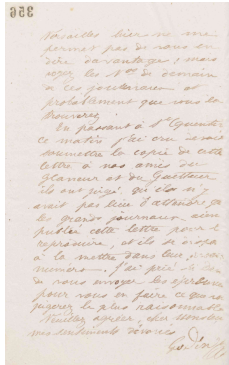 356
Versailles hier ne me
permet pas de vous en
dire davantage; mais
voyez les Nos de demain
de ces journaux et
probablement que vous la
trouverez.
En passant à St Quentin
ce matin j'ai cru devoir
soumettre la copie de cette
lettre à nos amis du
Glaneur et du Guetteur
ils ont jugé qu'il n'y
avait pas lieu d'attendre que
les grands journaux aient
publié cette lettre pour la
reproduire, et ils se
à la mettre dans leur
numéro. J'ai prié
de vous envoyer les
pour vous en faire ce que vous
jugerez le plus raisonnable
Veuillez agréer, cher Monsieur
mes sentiments dévoués
Godin